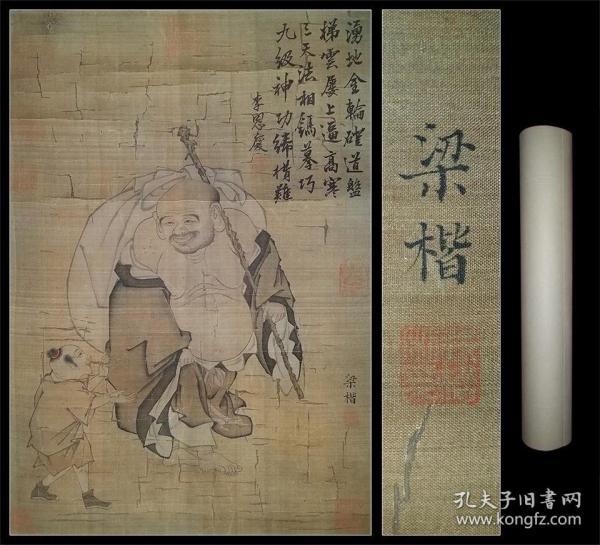 湧地金輪磴道盤
梯雲屢上逼高寒
三天法相鎸摹巧
九級神功締構難
李恩慶
梁楷
梁楷
孔夫子旧书网
www.kongfz.com